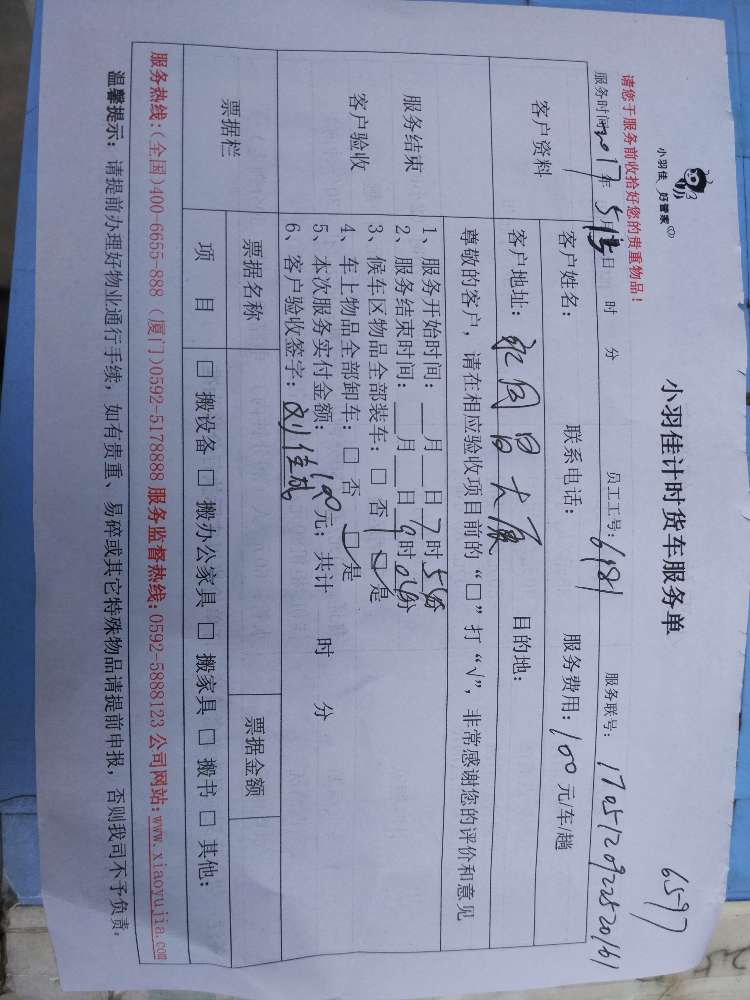 小羽佳 好管家(R)
小羽佳计时货车服务单
6597
请您于服务前收拾好您的贵重物品！
服务时间:2017年 5月 日 时 分 员工工号: 6181 服务联号: 1705120922520161
客户资料
客户姓名: 联系电话: 服务费用: 100 元/车/趟
客户地址: 目的地:
尊敬的客户，请在相应验收项目前的“□”打“√”，非常感谢您的评价和意见
服务结束
客户验收
1、服务开始时间: 月 日 7时 分
2、服务结束时间: 月 日 9时 分
3、候车区物品全部装车: □ 否 □ 是
4、车上物品全部卸车: □ 否 □ 是
5、本次服务实付金额: 100元; 共计 时 分
6、客户验收签字:
票据栏
票据名称 票据金额
项 目 □ 搬设备 □ 搬办公家具 □ 搬家具 □ 搬书 □ 其他:
服务热线:(全国)400-6655-888 (厦门)0592-5178888 服务监督热线:0592-5888123 公司网站:www.xiaoyujia.com
温馨提示: 请提前办理好物业通行手续，如有贵重、易碎或其它特殊物品请提前申报，否则我司不予负责.